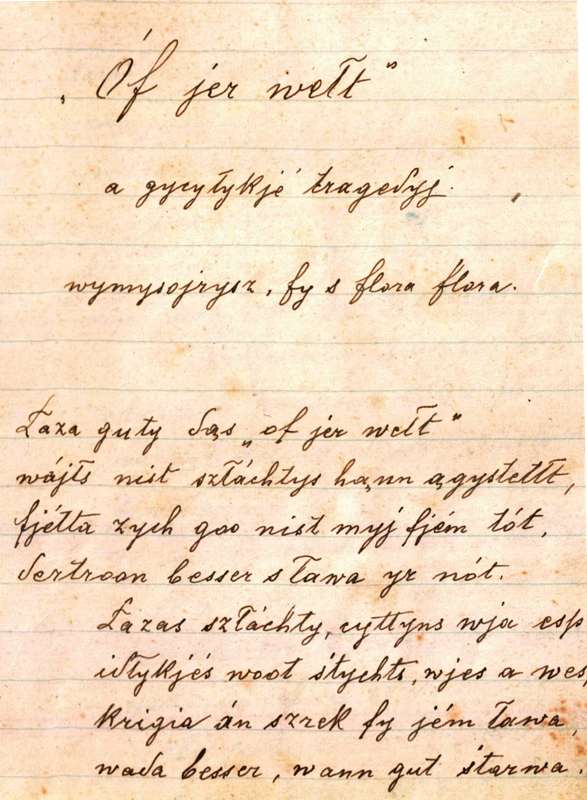 „Óf jer wełt"
a gycyłykjé tragedyj.
wymysojrysz, fy s flora flora.
Łaza guty dąs „of jer wełt"
wájts nist szłáchtys hąnn ągystełłt,
fjétta zych goo nist myj fjém tót,
dertroon besser s ława yr nót.
Łazas szłáchty, cyttyns wja esp
idłykjés woot śtychts, wjes a wes,
krigia án szrek fy jém ława,
wada besser, wann gut śtarwa.